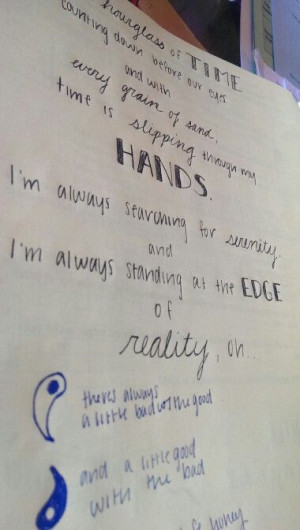 hourglass of TIME
counting down before our eyes
and with
every grain of sand,
time is slipping through my
HANDS.
I'm always searching for serenity
and
I'm always standing at the EDGE
of
reality, oh..
theres always
a little bad w/ the good
and a little good
with the bad
& honey